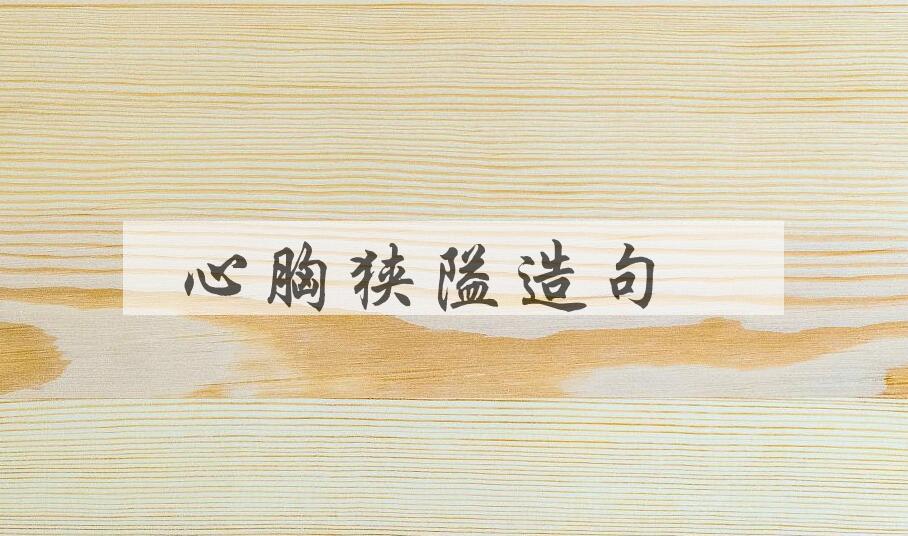 心胸狭隘造句